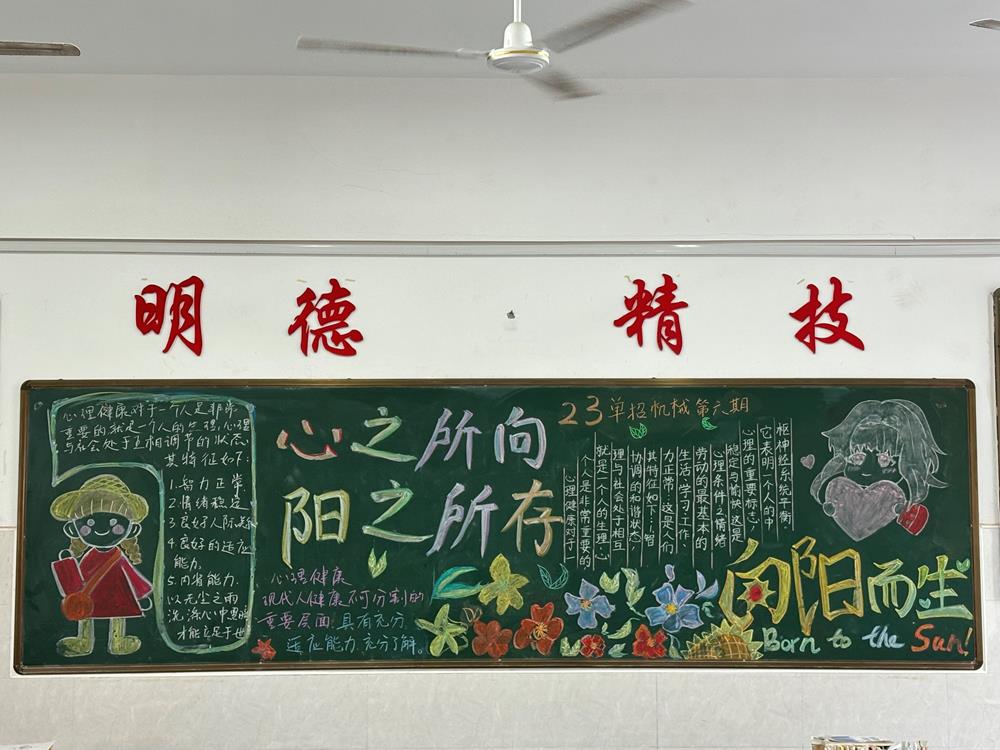 明德·精技
心理健康对于一个人是非常
重要的就是一个人的生理,心理
与社会处于互相调节的状态
其特征如下:
1.智力正常
2.情绪稳定
3.良好人际关系
4.良好的适应
能力。
5.内省能力.
以无尘之雨
洗涤心中累瞳
才能立足于世
心之所向
阳之所存
心理健康
现代人健康不可分割的
重要层面.具有充分
适应能力.充分了解。
23单招机械第六期
枢神经系统平衡.
它表明一个人的中
心理的重要标志,
稳定与愉快这是
心理条件2情绪
劳动的最基本的
生活,学习,工作、
力正常:这是人们
其特征如下:,智
协调的和谐状态,
理与社会处于相互
就是一个人的生理,心
个人是非常重要的
心理健康对于一
向阳而生
Born to the Sun!